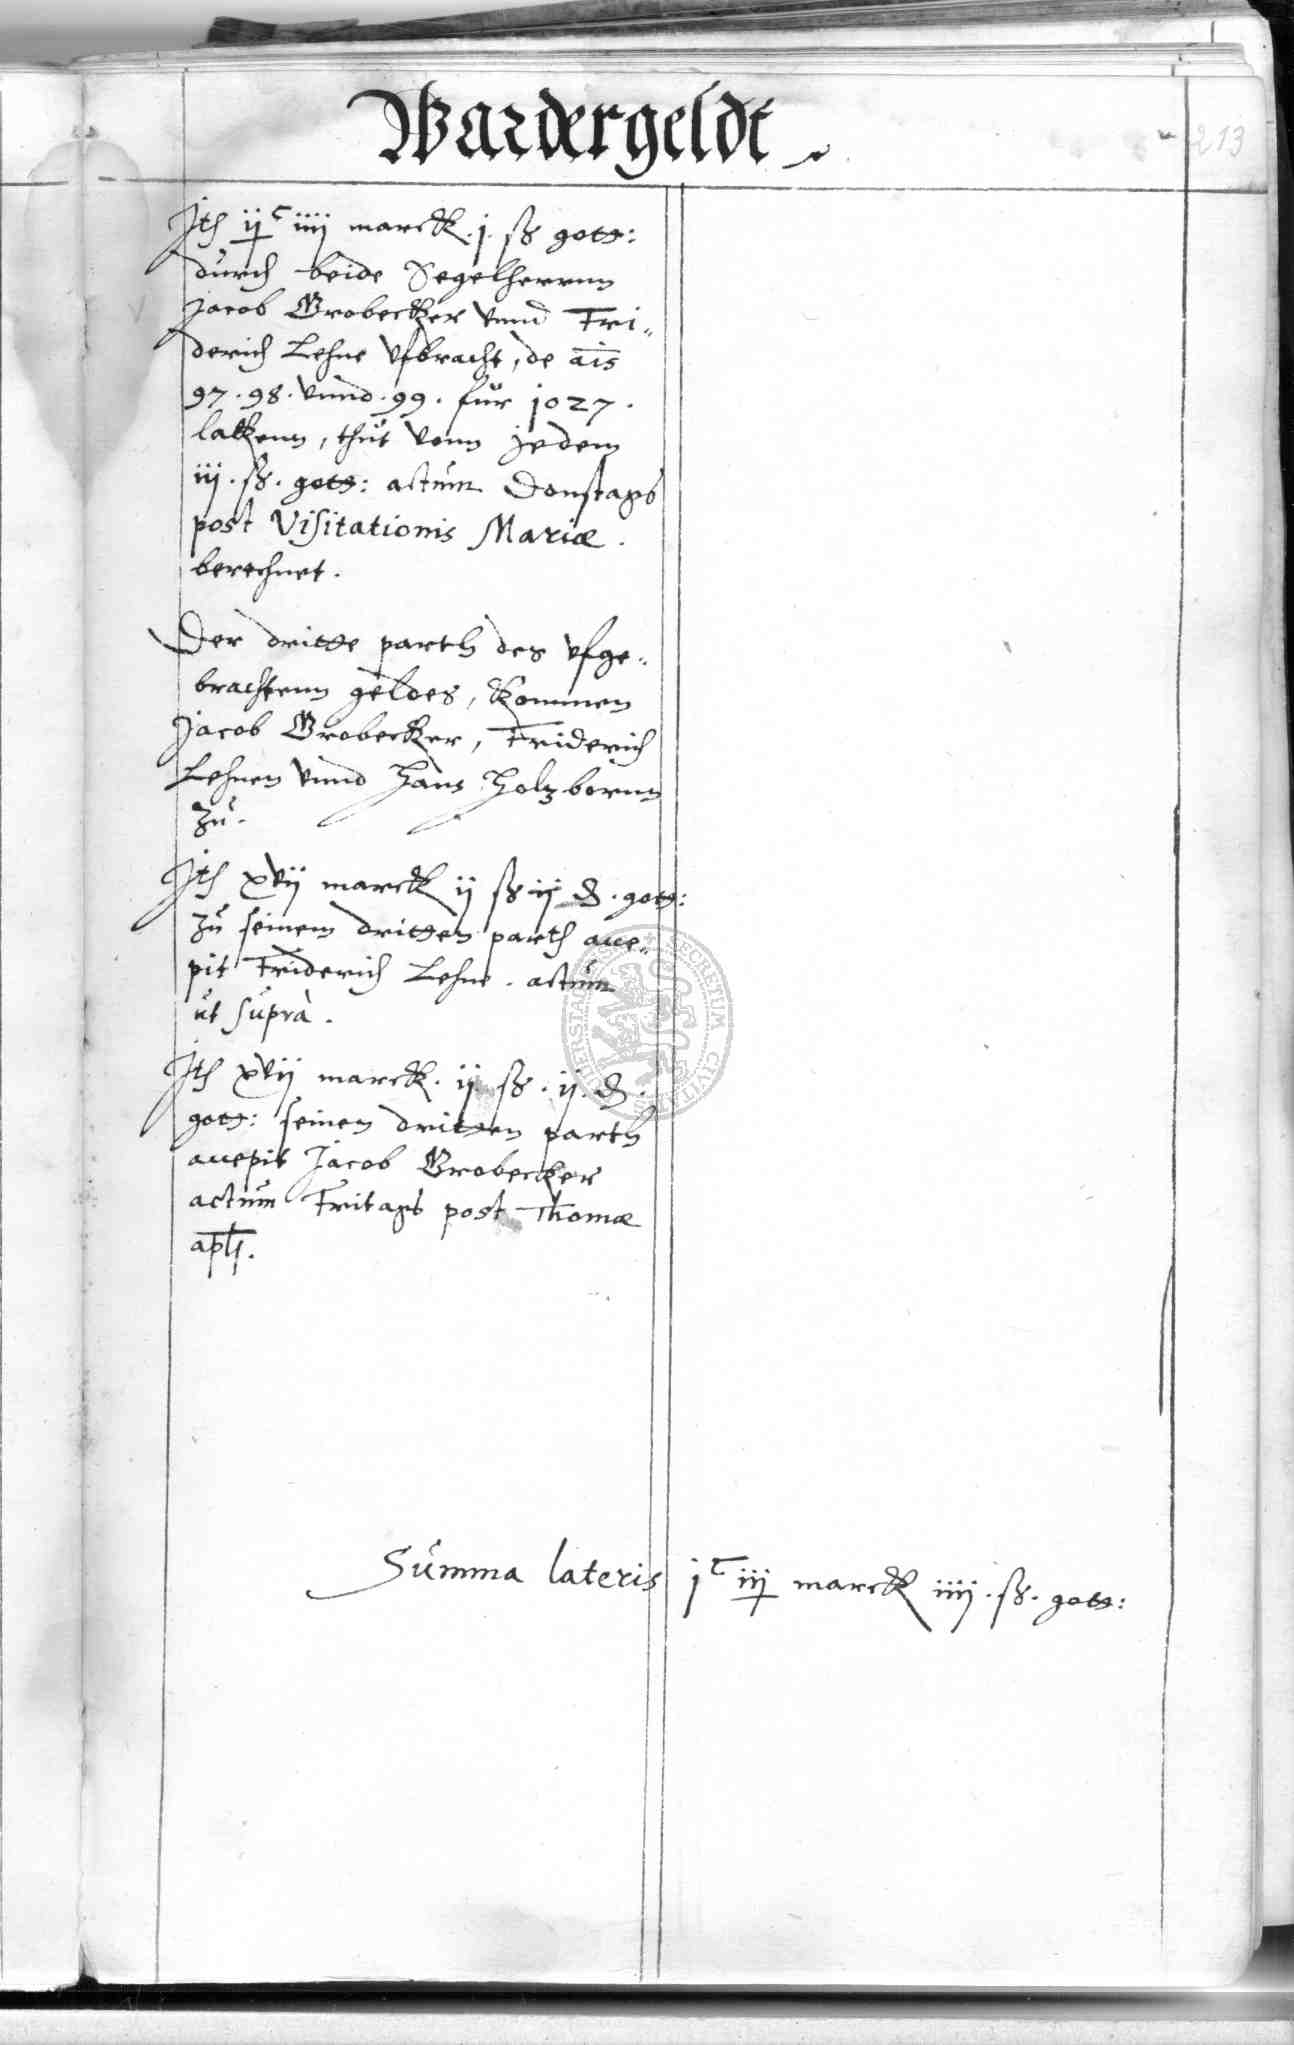 Wardergeldt
213
Ith ijc iiij marck . j . ß gott:
durch beide Segelherrnn
Jacob Grobecker vnnd Fri„
derich Lehne vfbracht, de ais
97 . 98 . vnnd . 99 . für 1027 .
lakenn, thut vonn jedem
iij . ß . gott: actum Donstags
post Visitationis Mariæ .
berechnet .
Der dritte parth des vfge„
brachtenn geldes, kommen
Jacob Grobecker, Friderich
Lehnen vnnd Hans Holzbornn
zu .
Ith xvij marck ij ß ij ₰ . gott:
zu seinem dritten parth acce„
pit Friderich Lehne . actum
ut suprà .
Ith xvij marck . ij . ß . ij . ₰ .
gott: seinen dritten parth
accepit Jacob Grobecker
actum Fritags post Thomæ
apli .
Summa lateris jc iij marck iiij . ß . gott:
SECRETUM CIVITATIS